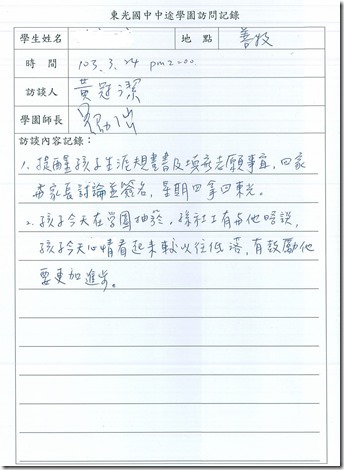 東光國中中途學園訪問記錄
學生姓名 地 點 善牧
時 間 103. 3. 24 pm 2:00
訪談人 黃冠潔
學園師長
訪談內容記錄：
1. 提醒孩子生涯規畫書及填寫志願事宜，回家
與家長討論並簽名，星期四拿回東光。
2. 孩子今天在學園抽菸，孫社工有與他晤談，
孩子今天心情看起來較以往低落，有鼓勵他
要更加進步。